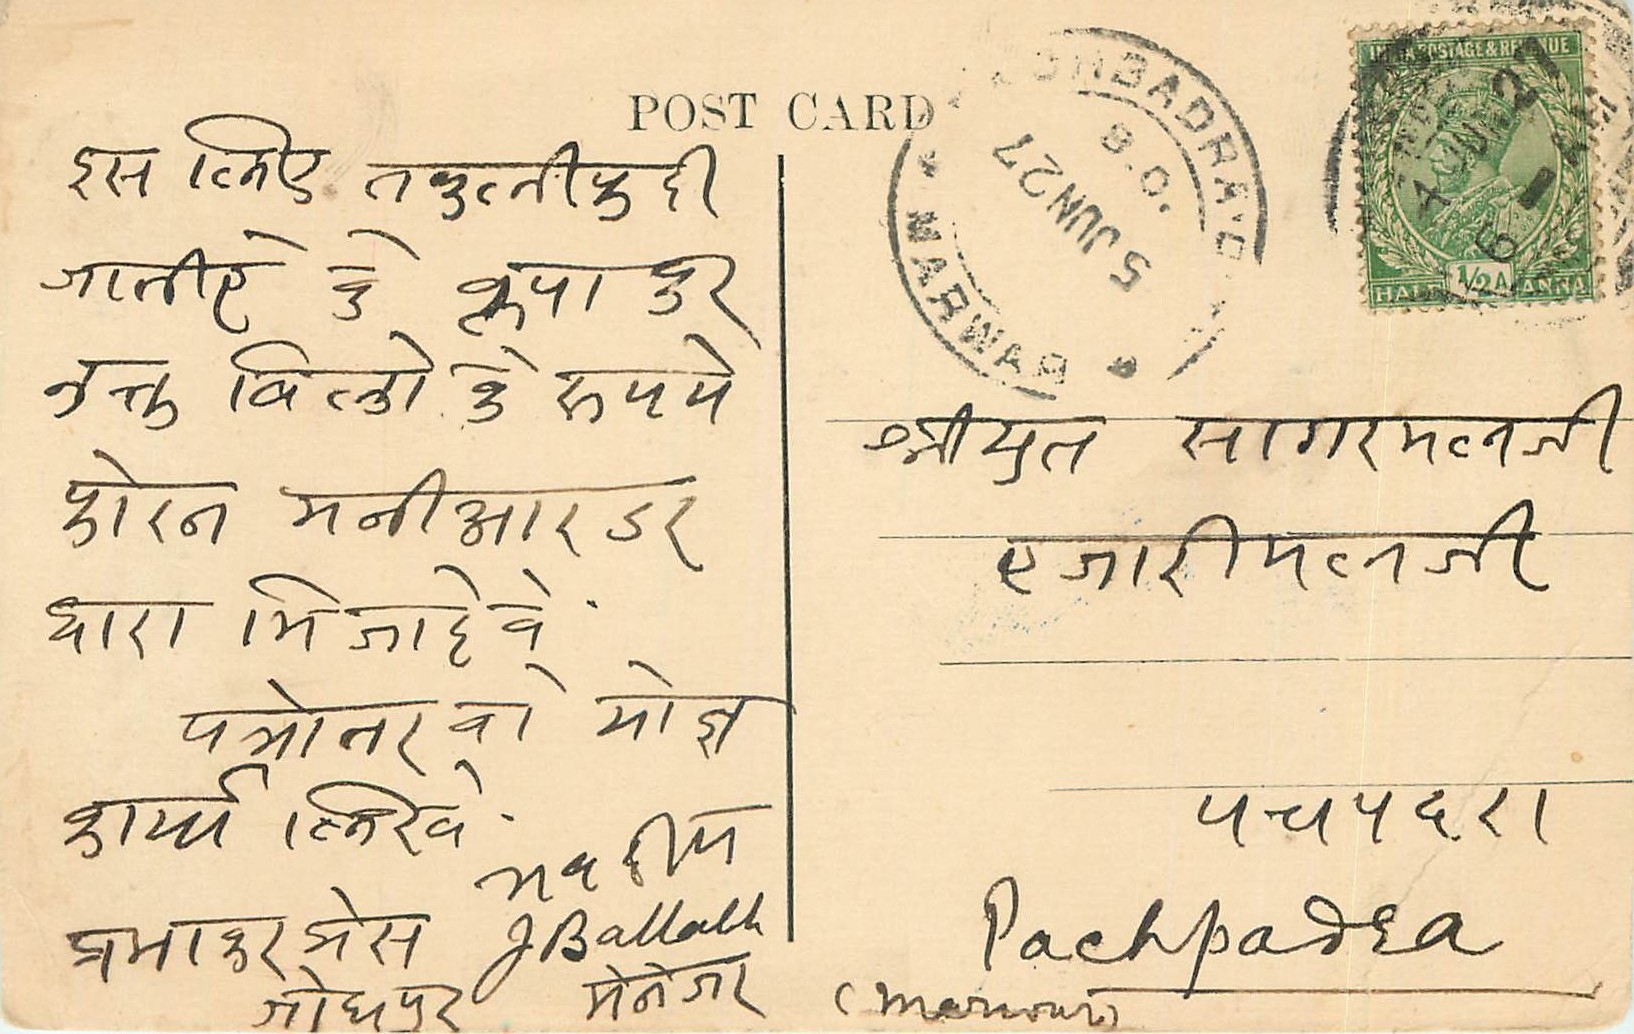 POST CARD
इस लिए तकलीफ दी
जाती है के कृपा कर
उक्त बिलो के रूपये
फोरन मनीआरडर
धारा भिजाहेवे.
पत्रोतर वो योज्ञ
कार्य्य लिखे.
भवदीय
प्रभाकर प्रेस J Ballabh
जोधपुर मेनेजर
INDIA POSTAGE & REVENUE
4 JUN 27
HALF ½A ANNA
B.O.
5 JUN 27
MARWAR
श्रीयुत सागरमलजी
हजारीमलजी
पचपदरा
Pachpadra
(Marwar)